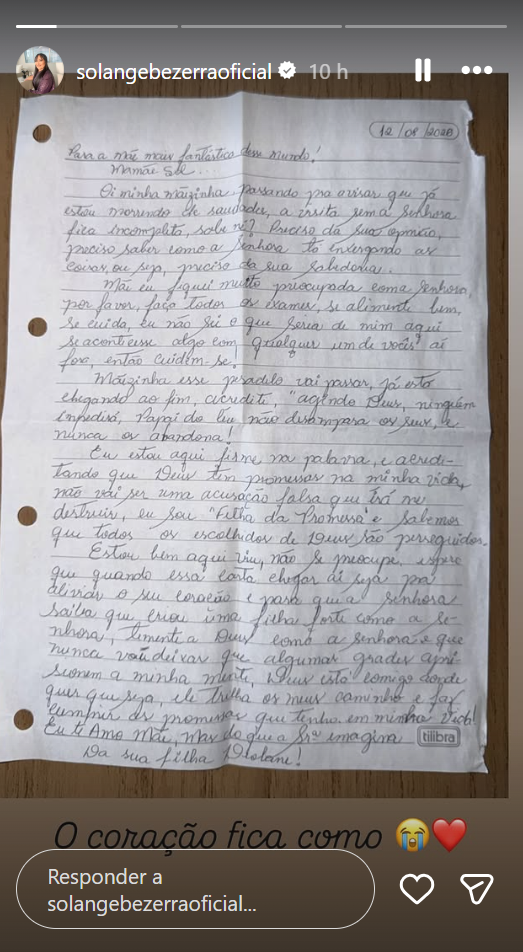 solangebezerraoficial 10 h
12/08/2026
Para a mãe mais fantástica desse mundo!
Mamãe Sol...
Oi minha mãezinha, passando pra avisar que já
estou morrendo de saudades, a visita sem a senhora
fica incompleta, sabe né? Preciso da sua opinião,
preciso saber como a senhora tá enxergando as
coisas, ou seja, preciso da sua sabedoria.
Mãe eu fiquei muito preocupada com a senhora,
por favor, faça todos os exames, se alimente bem,
se cuida, eu não sei o que seria de mim aqui
se acontecesse algo com qualquer um de vocês aí
fora, então cuidem-se!
Mãezinha esse pesadelo vai passar, já está
chegando ao fim, acredite, "agindo Deus, ninguém
impedirá, Papai do Céu não desampara os seus, e
nunca os abandona!
Eu estou aqui firme na palavra, e acredi-
tando que Deus tem promessas na minha vida,
não vai ser uma acusação falsa que irá me
destruir, eu sou "Filha da Promessa" e sabemos
que todos os escolhidos de Deus são perseguidos.
Estou bem aqui viu, não se preocupe, espero
que quando essa carta chegar aí seja pra
aliviar o seu coração e para que a senhora
saiba que criou uma filha forte como a se-
nhora, temente a Deus como a senhora e que
nunca vai deixar que algumas grades apri-
sionem a minha mente, Deus está comigo aonde
quer que seja, ele trilha os meus caminhos e faz
cumprir as promessas que tenho em minha vida!
Eu te Amo Mãe, mas do que a Srª imagina
tilibra
Da sua filha Deolane!
O coração fica como 😭❤️
Responder a
solangebezerraoficial...